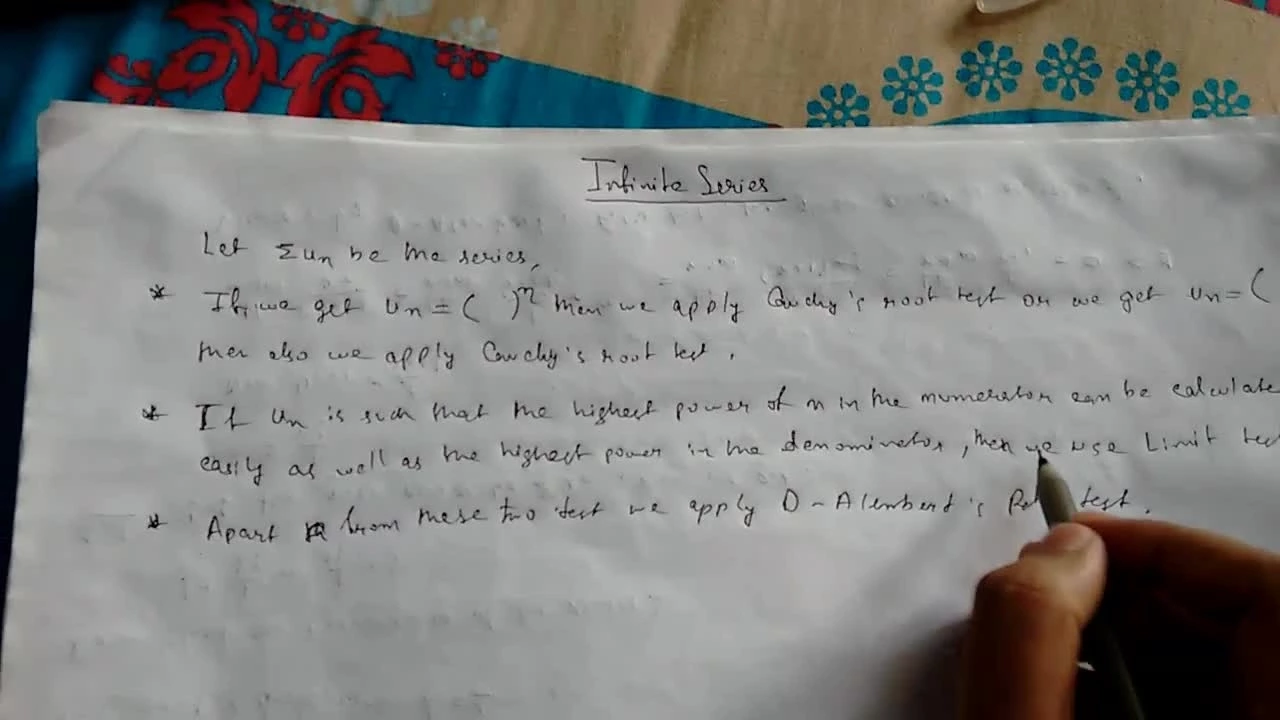 Infinite Series
Let Σun be the series,
* If, we get un = ( )^n then we apply Cauchy's root test or we get un = (
then also we apply Cauchy's root test.
* If un is such that the highest power of n in the numerator can be calculate
easily as well as the highest power in the denominator, then we use Limit tes
* Apart from these two test we apply D-Alembert's test.